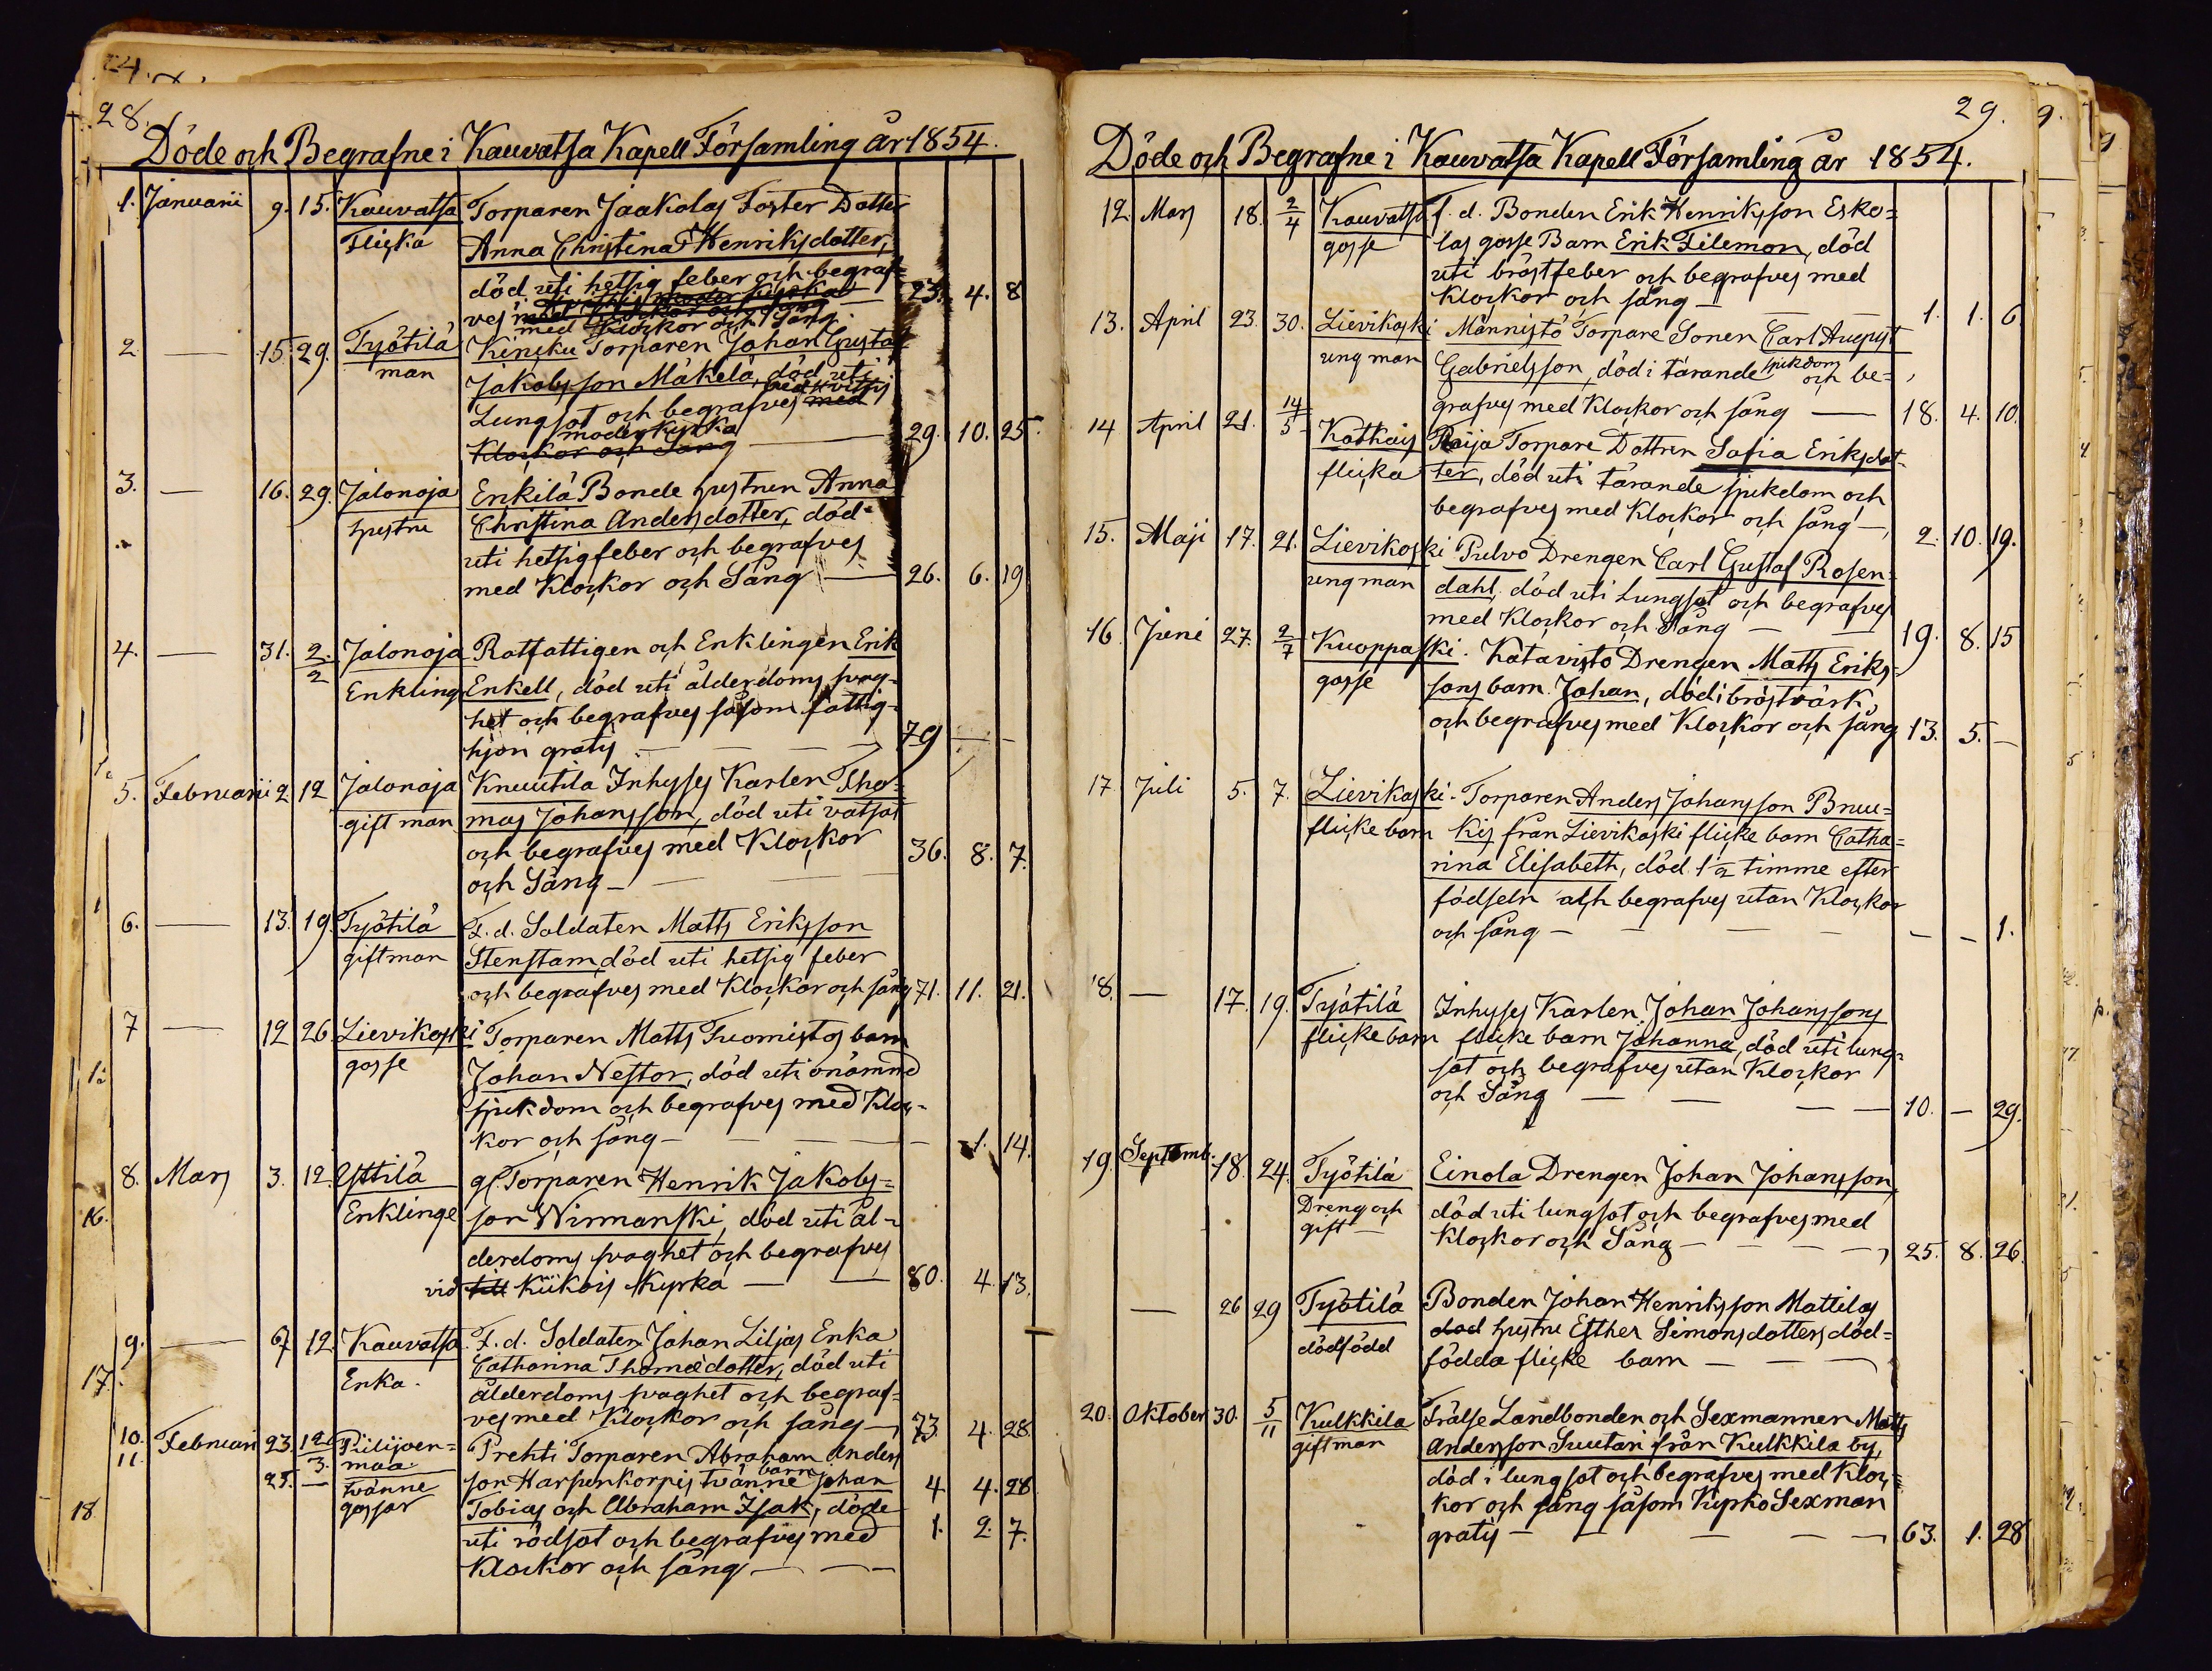 28.
Döde och Begrafne i Kauvatsa Kapell Församling år 1854.
1. Januarii 9. 15. Kauvatsa Torparen Jaakolas Foster Dotter
Flicka Anna Christina Henriksdotter,
död uti hetsig feber och begraf=
ves med Klockor och Sång 23. 4. 8
2. — 15. 29. Työtilä Kincku Torparen Johan Gustaf
man Jakobsson Mäkelä, död uti
Lungsot och begrafves med vid Hvittis
moderkyrka
Klockor och Sång — 29. 10. 25.
3. — 16. 29. Jalonoja Enkilä Bonde hustrun Anna
hustru Christina Andersdotter, död
uti hetsig feber och begrafves
med Klockor och Sång — 26. 6. 19
4. — 31. 2/2 Jalonoja Rotfattigen och Enklingen Erik
Enkling Enkell, död uti ålderdoms svag-
het och begrafves såsom fattig-
hjon gratis — — — 79 — —
5. Februarii 2 12 Jalonoja Knuutila Inhyses Karlen Tho=
gift man mas Johansson, död uti vatsot
och begrafves med Klockor 36. 8. 7.
och Sång — — —
6. — 13. 19. Työtilä F. d. Soldaten Matts Eriksson
gift man Stenstam, död uti hetsig feber
och begrafves med Klockor och sång 71. 11. 21.
7 — 12 26. Lievikoski Torparen Matts Tuomistos barn
gosse Johan Nestor, död uti onämnd
sjukdom och begrafves med Kloc-
kor och sång — — — — 1. 14.
8. Mars 3. 12. Yttilä gl. Torparen Henrik Jakobs=
Enklinge son Winmanski, död uti ål-
derdoms svaghet och begrafves
vid till Kiikois Kyrka — — 80. 4. 13.
9. — 7 12. Kauvatsa F. d. Soldaten Johan Liljas Enka
Enka. Catharina Thomædotter, död uti
ålderdoms svaghet och begraf=
ves med Klockor och sång — 73. 4. 28.
10. Februari 23. 12/3. Piilijoen= Prehti Torparen Abraham Anders
11. maa
25. — tvänne son Harjunkorpis tvänne barn Johan 4 4. 28
gossar Tobias och Abraham Isak, döde
uti rödsot och begrafves med 1. 2. 7.
Klockor och sång — —
29.
Döde och Begrafne i Kauvatsa Kapell Församling år 1854.
12. Mars 18. 2/4 Kauvatsa f. d. Bonden Erik Henriksson Esko=
gosse las gosse Barn Erik Filemon, död
uti bröstfeber och begrafves med
Klockor och sång — 1. 1. 6.
13. April 23. 30. Lievikoski Männistö Torpare Sonen Carl August
ung man Gabrielsson, död i tärande sjukdom och be=
grafves med Klockor och sång — 18. 4. 10.
14 April 21. 14/5 Kotkais Raija Torpare Dottren Sofia Eriksdot-
flicka ter, död uti tärande sjukdom och
begrafves med Klockor och sång — 2. 10. 19.
15. Maji 17. 21. Lievikoski Pulvo Drengen Carl Gustaf Rosen=
ung man dahl, död uti Lungsot och begrafves
med Klockor och Sång — — 19. 8. 15
16. Juni 27. 2/7 Kuoppaski. Katavisto Drengen Matts Eriks=
gosse sons barn Johan, död i bröstvärk,
och begrafves med Klockor och sång 13. 5. —
17. Juli 5. 7. Lievikoski. Torparen Anders Johansson Bruu=
flicke barn kis från Lievikoski flicke barn Catha=
rina Elisabeth, död 1/2 timme efter
födseln och begrafves utan Klockor
och sång — — — — — — 1.
18. — 17. 19. Työtilä Inhyses Karlen Johan Johanssons
flicke barn flicke barn Johanna, död uti lung=
sot och begrafves utan Klockor
och Sång — — — — 10. — 29.
19. Septemb. 18. 24. Työtilä Einola Drengen Johan Johansson,
Dreng och död uti lungsot och begrafves med
gift — Klockor och Sång — — — 25. 8. 26.
— 26 29 Työtilä Bonden Johan Henriksson Mattilas
död hustru Esther Simonsdotters död=
dödfödd födda flicke barn — —
20. Oktober 30. 5/11 Kulkkila Frälse Landbonden och Sexmannen Matts
gift man Andersson Suutari från Kulkkila by,
död i lungsot och begrafves med Kloc=
kor och sång såsom Kyrko Sexman
gratis — — — — 63. 1. 28